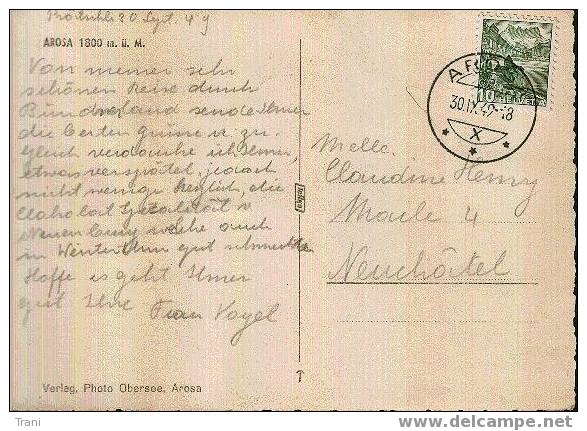 30 Sept. 49
AROSA 1800 m. ü. M.
Von meiner sehr
schönen Reise durch
Bündnerland sende Ihnen
die besten Grüsse u. zu-
gleich verdanke ich Ihnen,
etwas verspätet, jedoch
nicht wenige herzlich, die
v
Neuenburg welche auch
in Winterthur gut schmeckte
Hoffe es geht Ihnen
gut Ihre Frau Vogel
Verlag, Photo Obersee, Arosa
AROSA
30.IX.49-18
X
10 HELVETIA
Melle.
Claudine Henry
4
Neuchâtel
Trani
delcampe.net